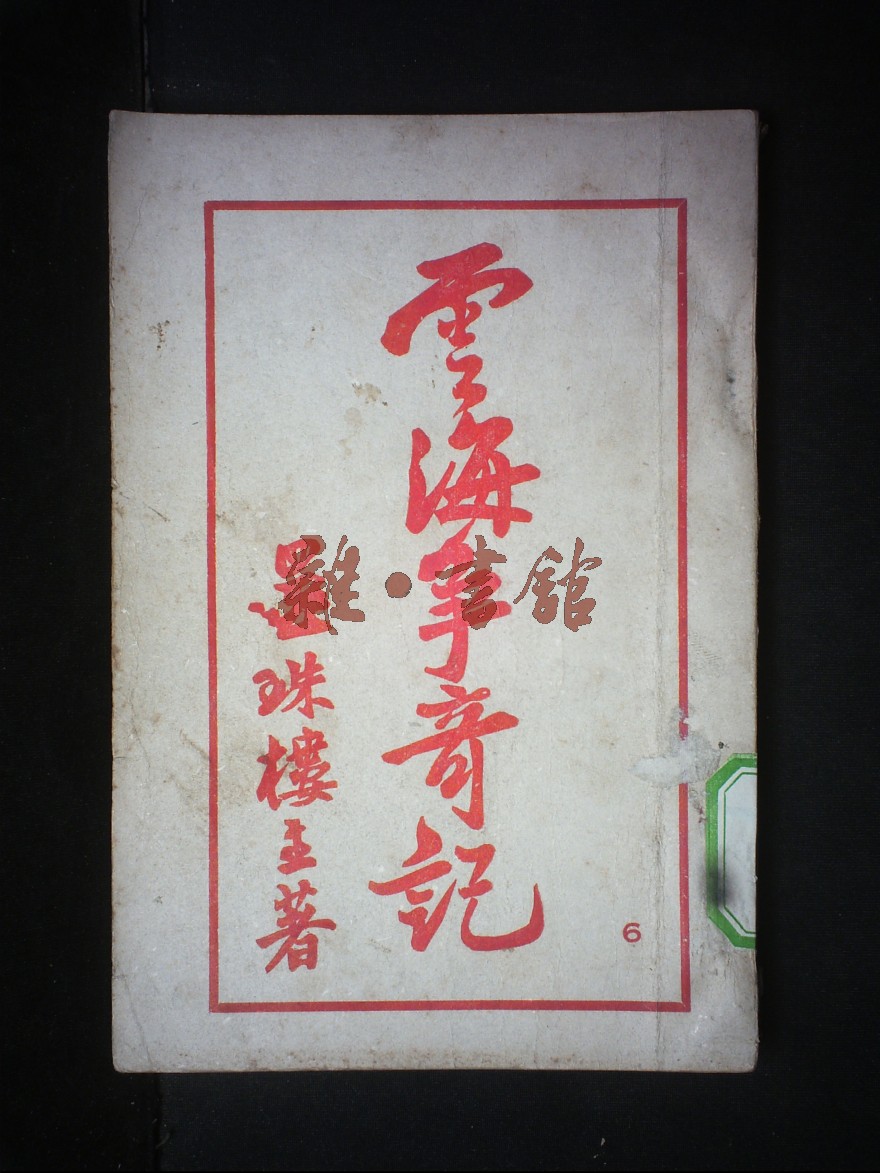 雲海爭奇記
還珠樓主著
6
雜·書舘